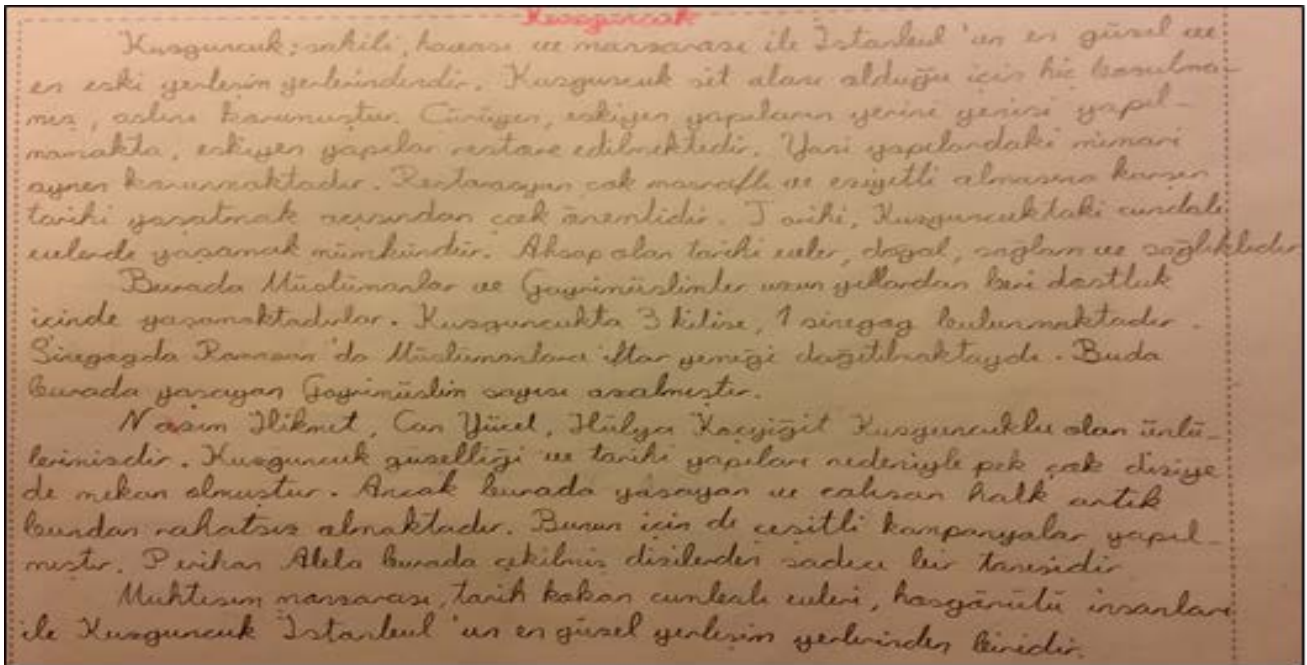 Kuzguncuk
Kuzguncuk; sahili, havası ve manzarası ile İstanbul'un en güzel ve
en eski yerleşim yerlerindendir. Kuzguncuk sit alanı olduğu için hiç bozulma-
mış, aslını korumuştur. Çürüyen, eskiyen yapıların yerine yenisi yapıl-
mamakta, eskiyen yapılar restore edilmektedir. Yani yapılardaki mimari
aynen korunmaktadır. Restorasyon çok masraflı ve eziyetli olmasına karşın
tarihi yaşatmak açısından çok önemlidir. Tarihi, Kuzguncuktaki cumbalı
evlerde yaşamak mümkündür. Ahşap olan tarihi evler, doğal, sağlam ve sağlıklıdır
Burada Müslümanlar ve Gayrimüslimler uzun yıllardan beri dostluk
içinde yaşamaktadırlar. Kuzguncukta 3 kilise, 1 sinegog bulunmaktadır.
Sinegogda Ramazan'da Müslümanlara iftar yemeği dağıtılmaktaydı. Buda
burada yaşayan Gayrimüslim sayısı azalmıştır.
Nazım Hikmet, Can Yücel, Hülya Koçyiğit Kuzguncuklu olan ünlü-
lerimizdir. Kuzguncuk güzelliği ve tarihi yapıları nedeniyle pek çok diziye
de mekan olmuştur. Ancak burada yaşayan ve çalışan halk artık
bundan rahatsız olmaktadır. Bunun için de çeşitli kampanyalar yapıl-
mıştır. Perihan Abla burada çekilmiş dizilerden sadece bir tanesidir
Muhteşem manzarası, tarih kokan cumbalı evleri, hoşgörülü insanları
ile Kuzguncuk İstanbul'un en güzel yerleşim yerlerinden biridir.